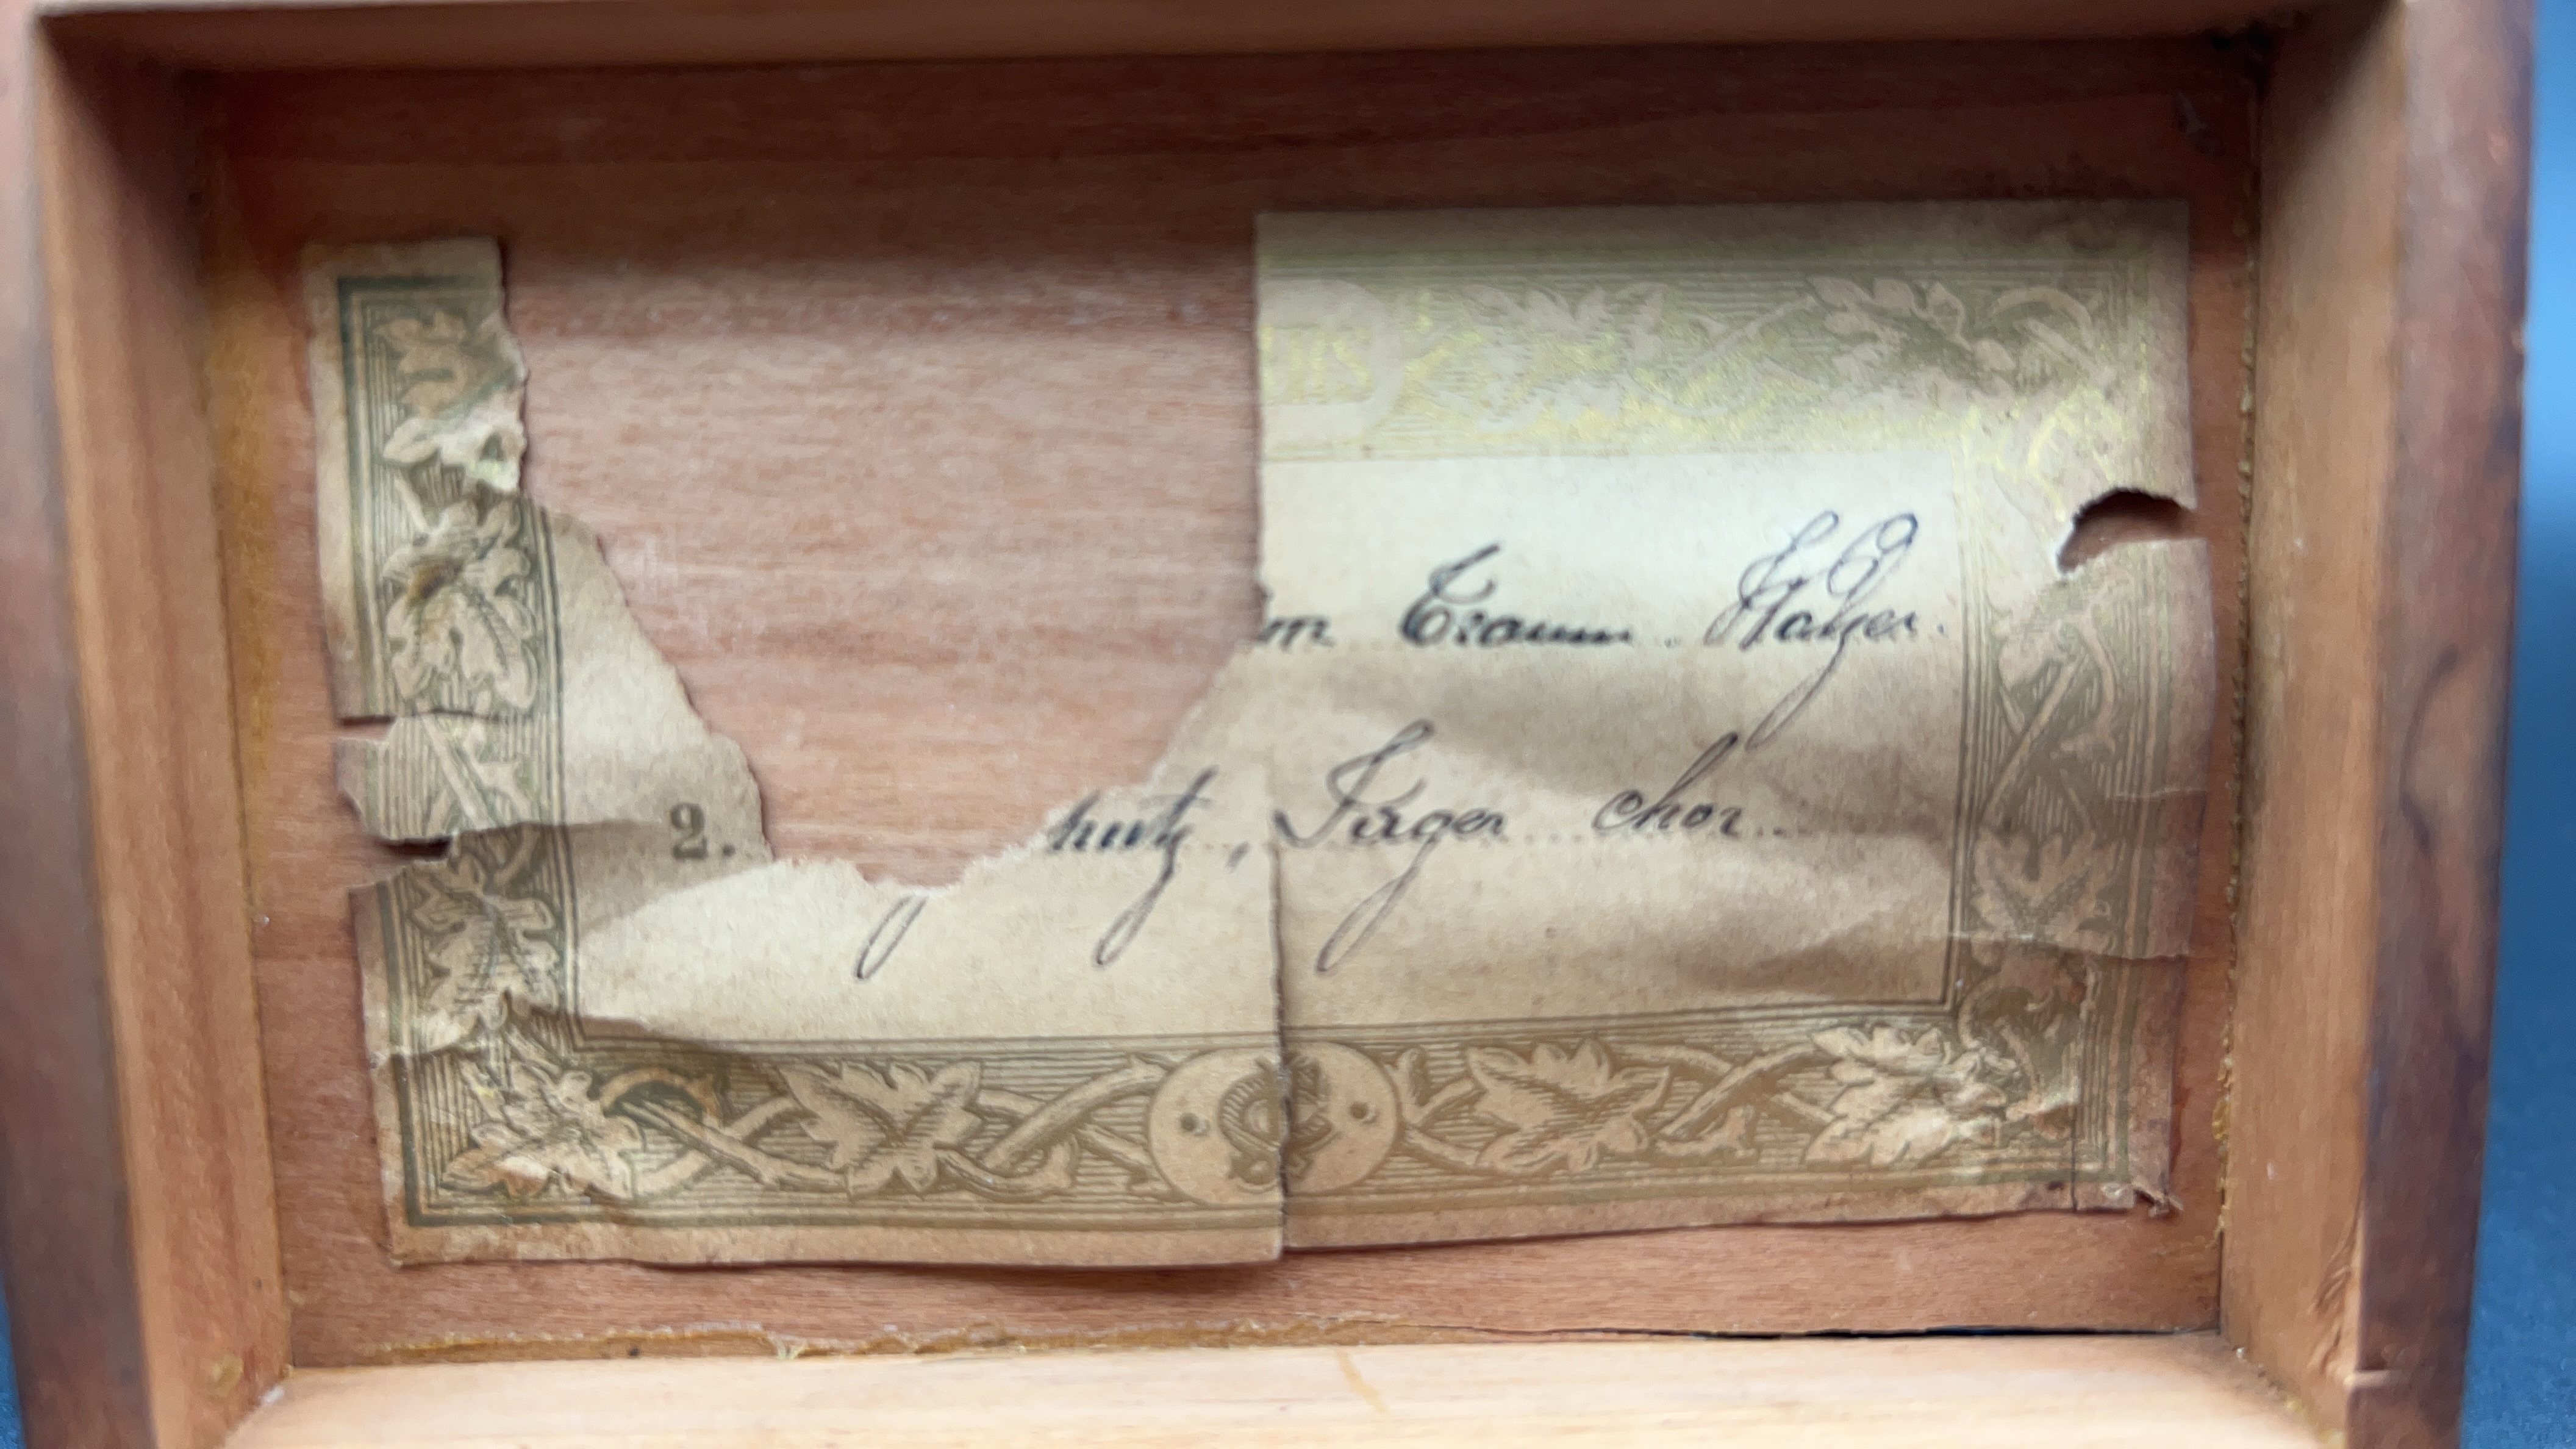 m Traum Walzer.
2. hutz, Jäger chor